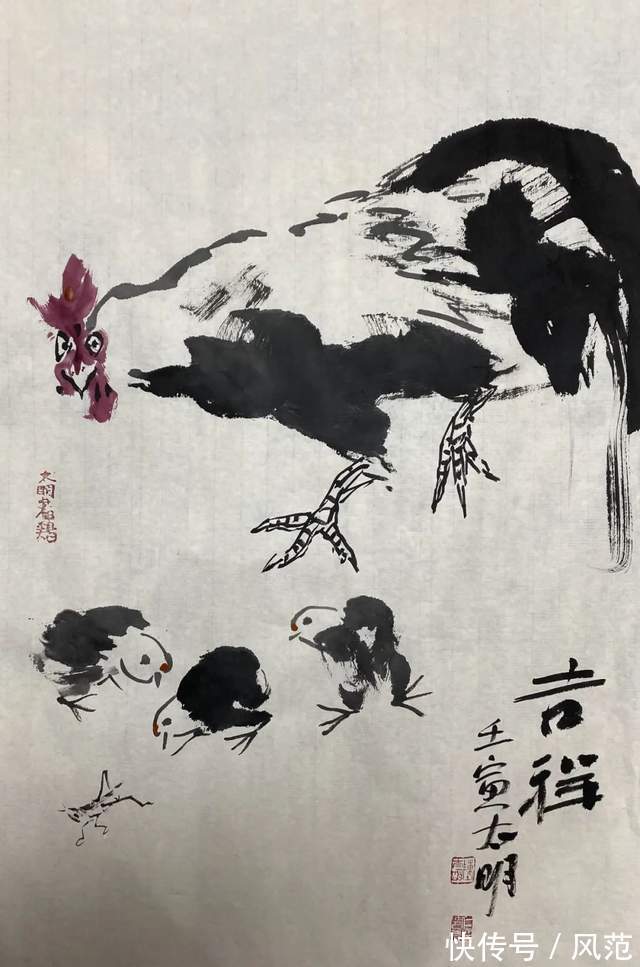 吉祥
壬寅太明
太明画鸡
快传号／风范